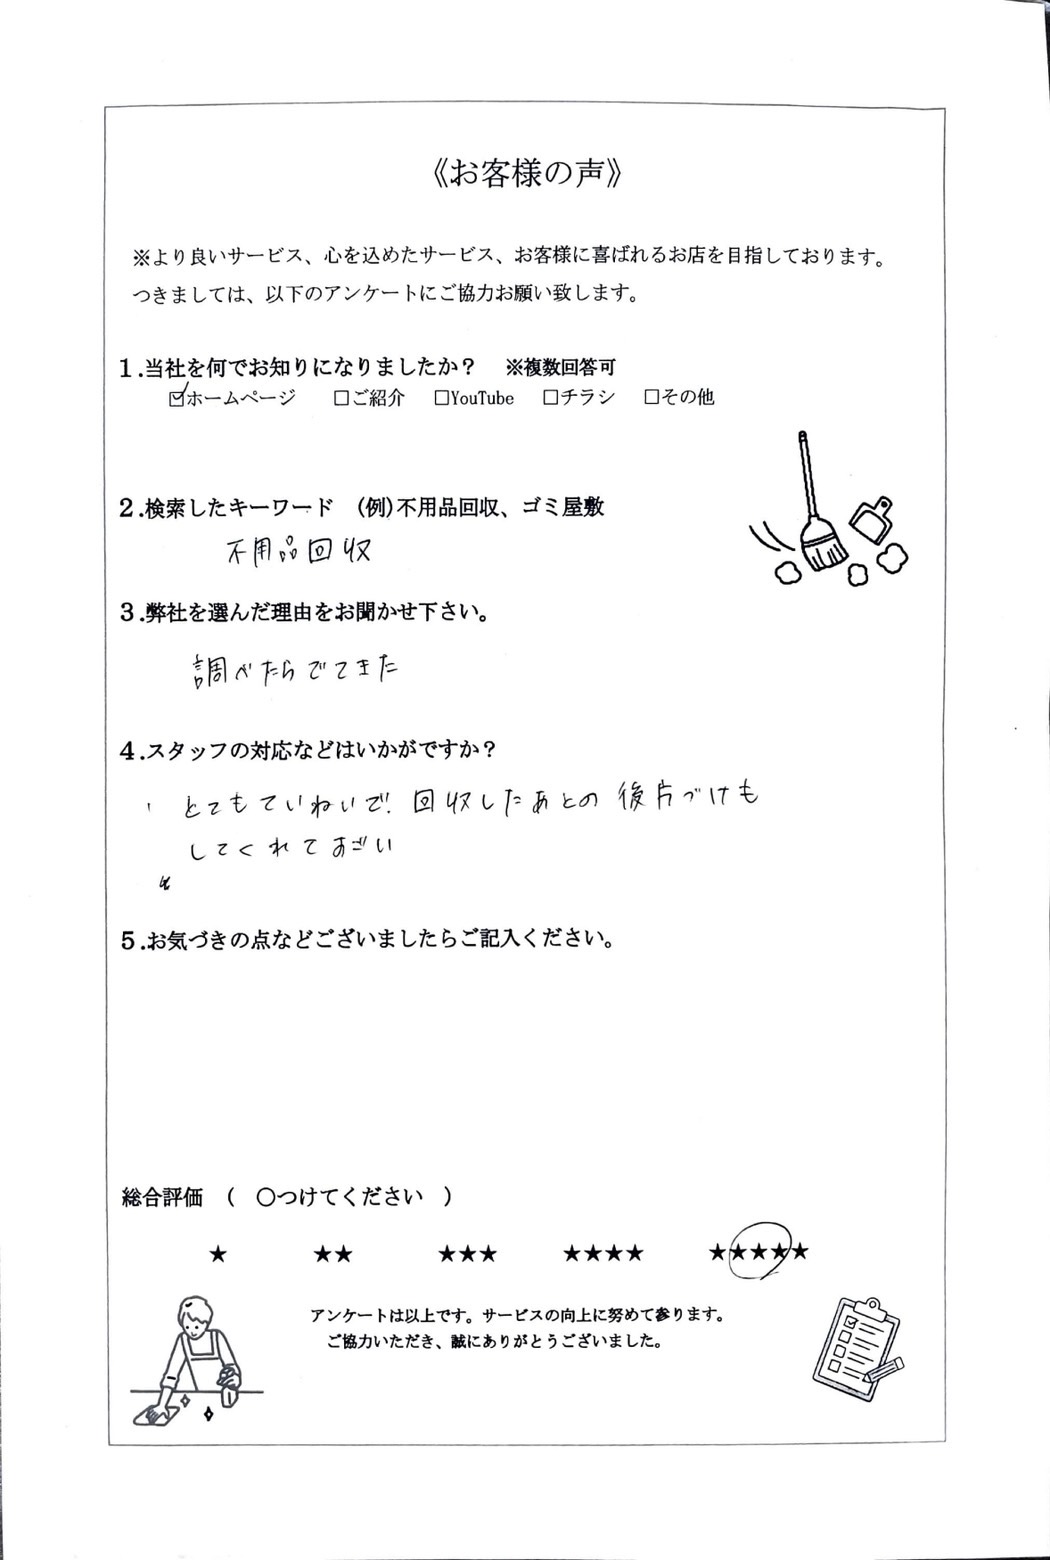 《お客様の声》
※より良いサービス、心を込めたサービス、お客様に喜ばれるお店を目指しております。
つきましては、以下のアンケートにご協力お願い致します。
1.当社を何でお知りになりましたか？ ※複数回答可
☑ホームページ □ご紹介 □YouTube □チラシ □その他
2.検索したキーワード (例)不用品回収、ゴミ屋敷
不用品回収
3.弊社を選んだ理由をお聞かせ下さい。
調べたらでてきた
4.スタッフの対応などはいかがですか？
とてもていねいで! 回収したあとの後片づけも
してくれてすごい
5.お気づきの点などございましたらご記入ください。
総合評価 ( ○つけてください )
★ ★★ ★★★ ★★★★ ★★★★★
アンケートは以上です。サービスの向上に努めて参ります。
ご協力いただき、誠にありがとうございました。